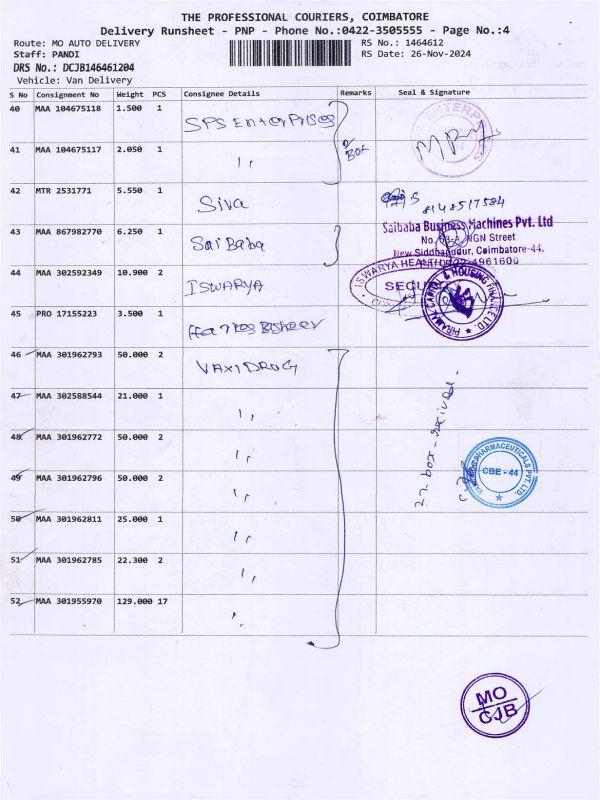 THE PROFESSIONAL COURIERS, COIMBATORE
Delivery Runsheet - PNP - Phone No.:0422-3505555 - Page No.:4
Route: MO AUTO DELIVERY
RS No.: 1464612
Staff: PANDI
RS Date: 26-Nov-2024
DRS No.: DCJB146461204
Vehicle: Van Delivery
S No Consignment No Weight PCS Consignee Details Remarks Seal & Signature
40 MAA 104675118 1.500 1 SPS Enterprises
ENTERP
41 MAA 104675117 2.050 1 ''
Box
42 MTR 2531771 5.550 1 Siva
8148517584
43 MAA 867982770 6.250 1 Sai Baba
Saibaba Business Machines Pvt. Ltd
NGN Street
New Siddhapudur, Coimbatore-44.
44 MAA 302592349 10.900 2 ISWARYA
ISWARYA
PIRAMAL CAPITAL & HOUSING FINANCE LTD.
45 PRO 17155223 3.500 1
46 MAA 301962793 50.000 2 VAXI DRUG
47 MAA 302588544 21.000 1 ''
48 MAA 301962772 50.000 2 ''
49 MAA 301962796 50.000 2 ''
50 MAA 301962811 25.000 1 ''
51 MAA 301962785 22.300 2 ''
52 MAA 301955970 129.000 17 ''
27-box-recived.
PHARMACEUTICALS PVT. LTD.
CBE - 44
MO
CJB